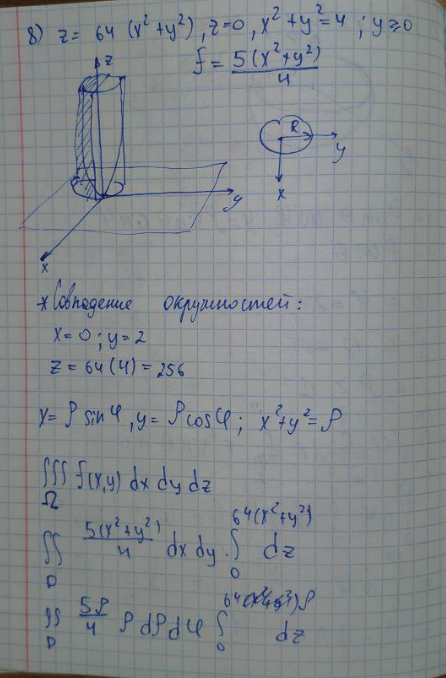 8) z = 64 (x²+y²), z=0, x²+y²=4 ; y≥0
f = 5(x²+y²)/4
z
R
y
x
y
x
Совпадение окружностей:
x=0 ; y=2
z = 64(4) = 256
x= ρ sin φ , y= ρ cos φ ; x²+y² = ρ
∭_Ω f(x,y) dx dy dz
∬_D 5(x²+y²)/4 dx dy · ∫_0^{64(x²+y²)} dz
∬_D 5ρ/4 ρ dρ dφ ∫_0^{64ρ} dz